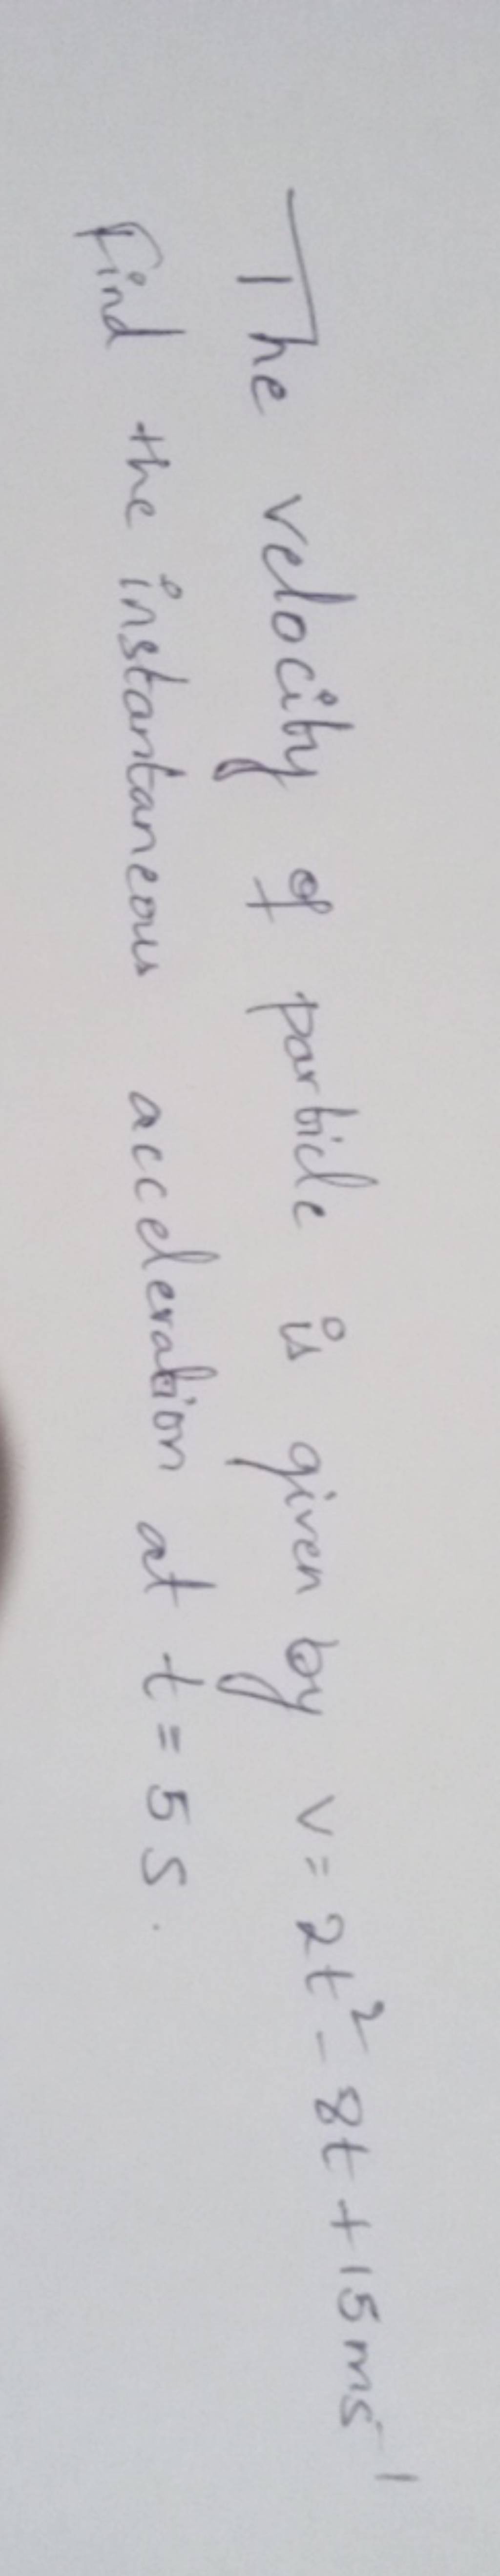 The velocity of particle is given by v = 2t² - 8t + 15 ms⁻¹
Find the instantaneous acceleration at t = 5 s.